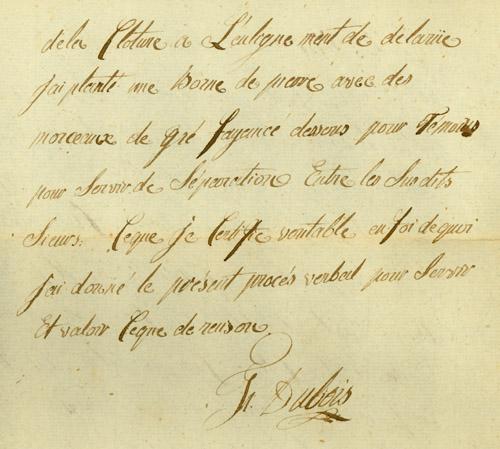 dela Cloture a L'enlegne ment de delarüe
J'ai planté une Borne de pierre avec des
morceaux de gré fayancé dessous pour Temoins
pour Servir de Séparation Entre les Susdits
Sieurs. Ceque je Certifie veritable en foi de quoi
J'ai donné le présent procés verbal pour Servir
Et valoir Ceque de reuson.
Dubois